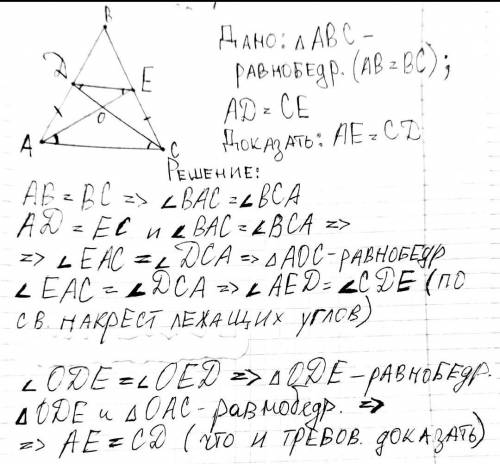 B
Дано: △ABC -
D
E
равнобедр. (AB = BC);
O
AD = CE
A
C
Доказать: AE = CD
Решение:
AB = BC => ∠BAC = ∠BCA
AD = EC и ∠BAC = ∠BCA =>
=> ∠EAC = ∠DCA => △AOC - равнобедр
∠EAC = ∠DCA => ∠AED = ∠CDE (по
св. накрест лежащих углов)
∠ODE = ∠OED => △ODE - равнобедр.
△ODE и △OAC - равнобедр. =>
=> AE = CD (что и требов. доказать)